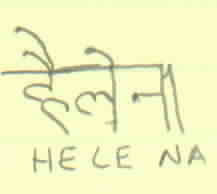 हैलेना
HELENA